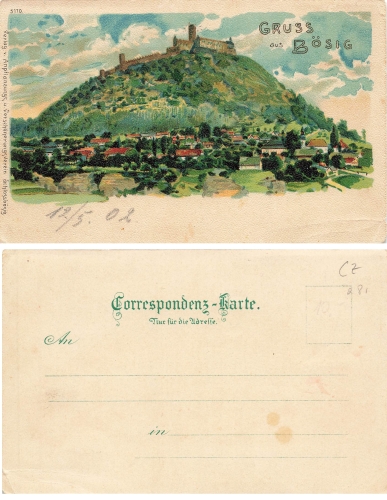 5110.
GRUSS
aus BÖSIG
12/5. 02
CZ
Correspondenz-Karte.
Nur für die Adresse.
An
in